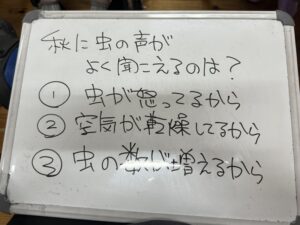 秋に虫の声が
よく聞こえるのは?
① 虫が怒ってるから
② 空気が乾燥してるから
③ 虫の数が増えるから